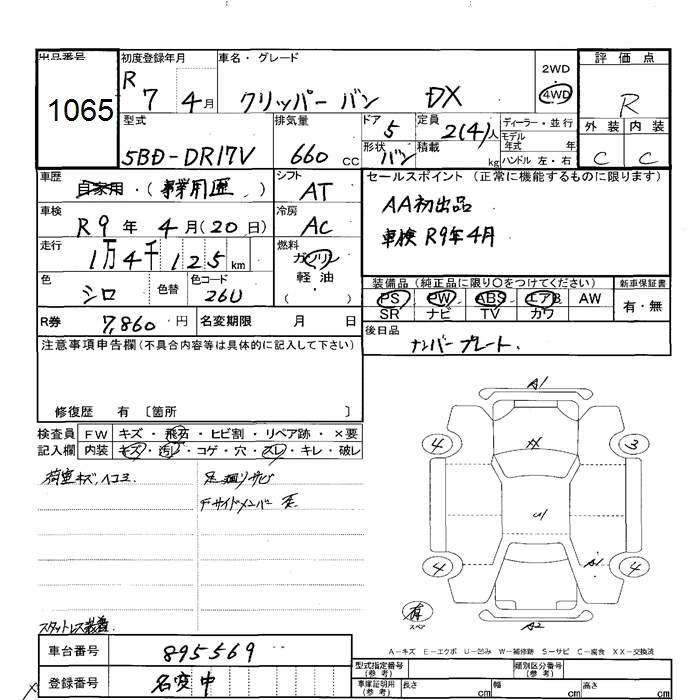 出品番号 初度登録年月 車名・グレード 評価点
1065 R 7 4月 クリッパー バン DX 2WD 4WD R
型式 排気量 ドア 5 定員 2(4)人 ディーラー・並行 外装 内装
5BD-DR17V 660 cc 形状 バン 積載 kg モデル年式 年式 ハンドル 左・右 C C
車歴 自家用・(事業用 ) シフト AT セールスポイント(正常に機能するものに限ります)
車検 R9年 4月(20日) 冷房 AC AA初出品
走行 1万4千125km 燃料 ガソリン 軽油 ( ) 車検 R9年4月
色 シロ 色替 色コード 26U 装備品(純正品に限り○をつけてください) 新車保証書
PS PW ABS エアB AW 有・無
SR ナビ TV カワ
R券 7,860円 名変期限 月 日 後日品
注意事項申告欄(不具合内容等は具体的に記入して下さい) ナンバープレート.
修復歴 有〔箇所 〕
検査員 FW キズ・飛石・ヒビ割・リペア跡・×要
記入欄 内装 キズ・汚れ・コゲ・穴・スレ・キレ・破レ
荷室キズ、ヘコミ 足廻りサビ
テーサイドメンバー
A1
4 XX 3
U1
4 A1 4
有 スペア A2
スタットレス装着.
A-キズ E-エクボ U-凹み W-補修跡 S-サビ C-腐食 XX-交換済
車台番号 895569 型式指定番号(参考) 類別区分番号(参考)
登録番号 名変中 車庫証明用(参考) 長さ cm 幅 cm 高さ cm